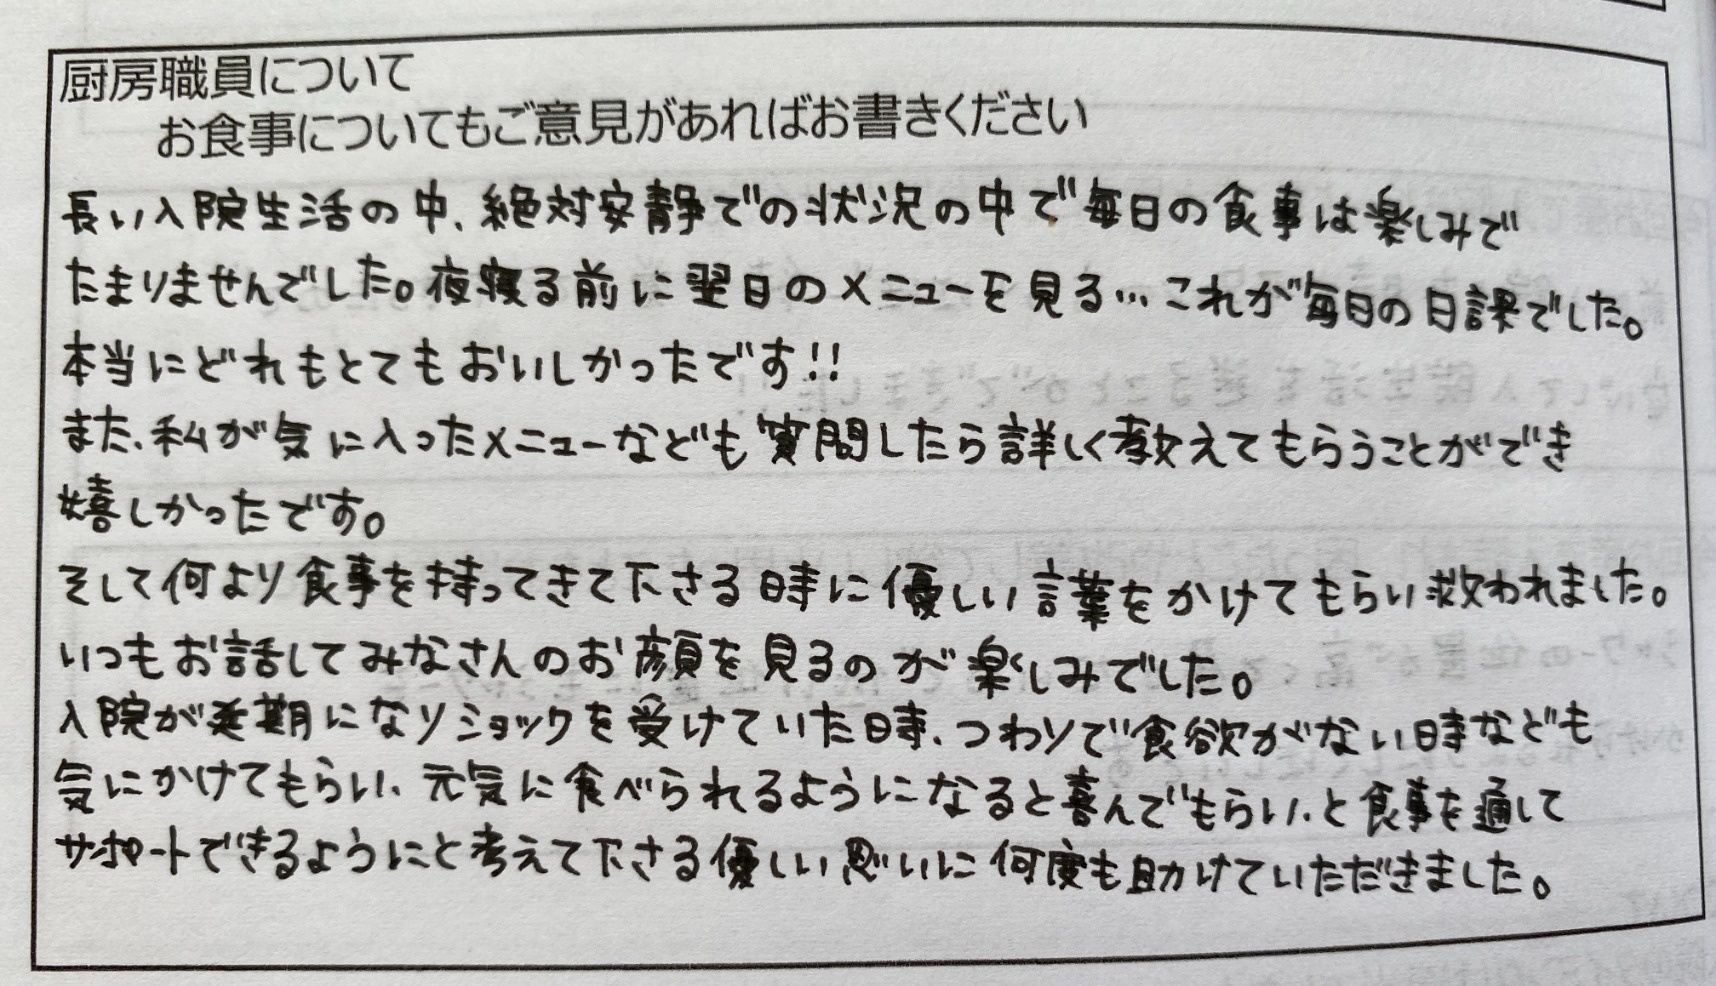 厨房職員について
お食事についてもご意見があればお書きください
長い入院生活の中、絶対安静での状況の中で毎日の食事は楽しみで
たまりませんでした。夜寝る前に翌日のメニューを見る…これが毎日の日課でした。
本当にどれもとてもおいしかったです!!
また、私が気に入ったメニューなども質問したら詳しく教えてもらうことができ
嬉しかったです。
そして何より食事を持ってきて下さる時に優しい言葉をかけてもらい救われました。
いつもお話してみなさんのお顔を見るのが楽しみでした。
入院が延期になりショックを受けていた時、つわりで食欲がない時なども
気にかけてもらい、元気に食べられるようになると喜んでもらい、と食事を通して
サポートできるようにと考えて下さる優しい思いに何度も助けていただきました。